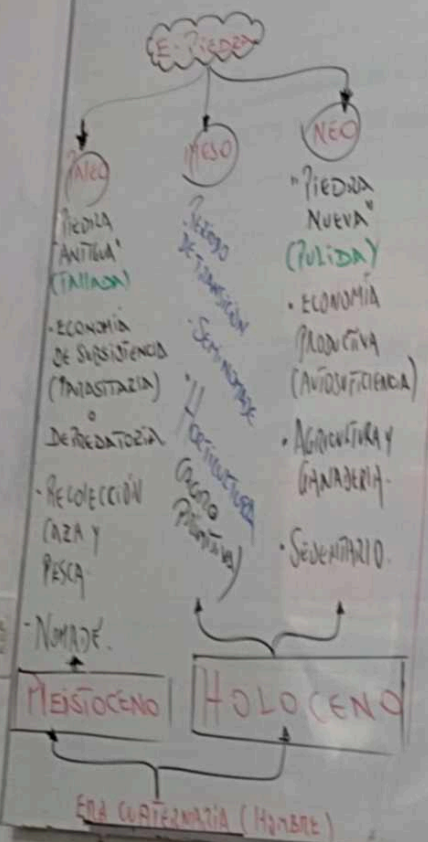 E. PIEDRA
PALEO
PIEDRA
"ANTIGUA"
(TALLADA)
· ECONOMÍA
DE SUBSISTENCIA
(PARASITARIA)
O
DEPREDATORIA
· RECOLECCIÓN
CAZA Y
PESCA.
- NOMADE.
MESO
· PERIODO
DE TRANSICIÓN
· SEMI-NOMADE
· HORTICULTURA
NEO
"PIEDRA
NUEVA"
(PULIDA)
· ECONOMÍA
PRODUCTIVA
(AUTOSUFICIENCIA)
· AGRICULTURA Y
GANADERIA.
· SEDENTARIO.
PLEISTOCENO
HOLOCENO
ERA CUATERNARIA (HOMBRE)